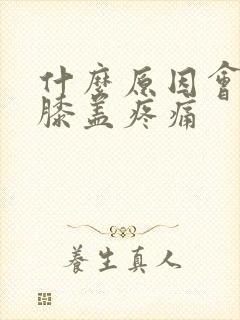 什麼原因會
膝盖疼痛
養生真人